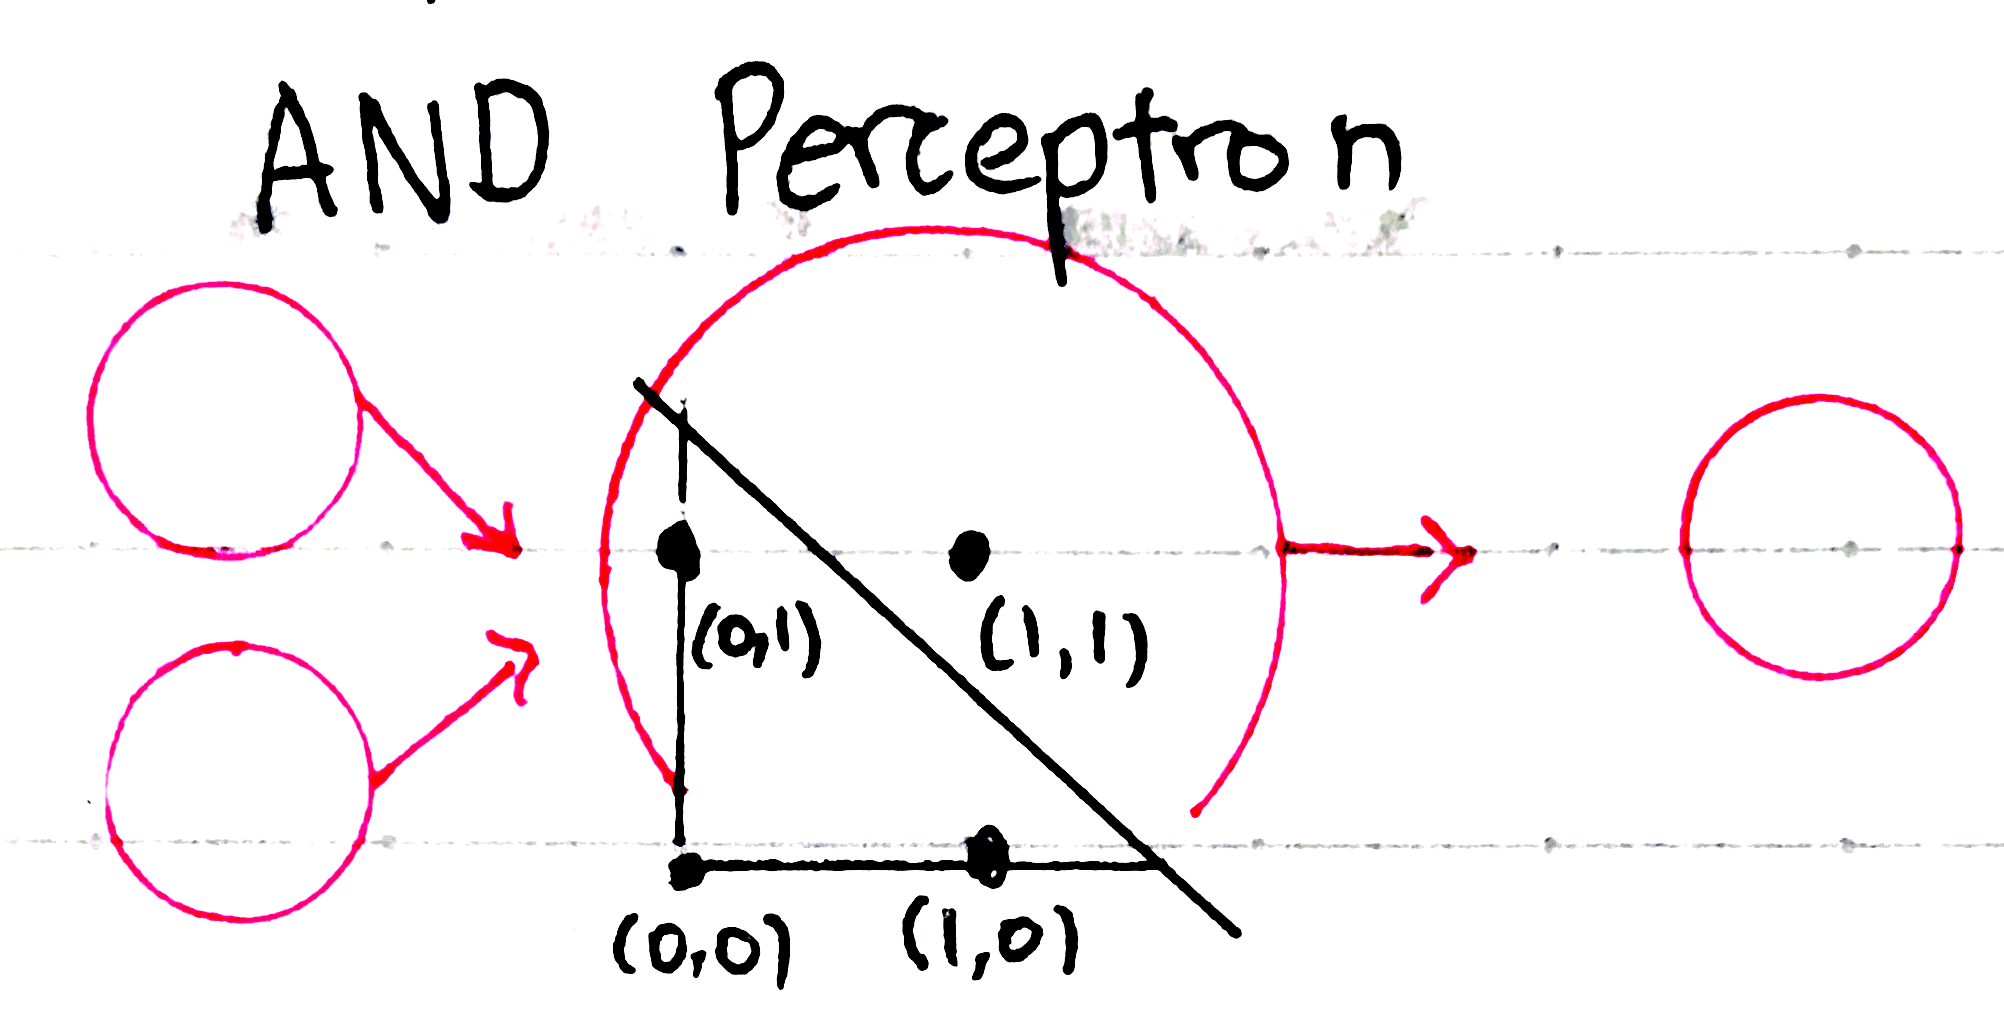 AND Perceptron
(0,1) (1,1)
(0,0) (1,0)